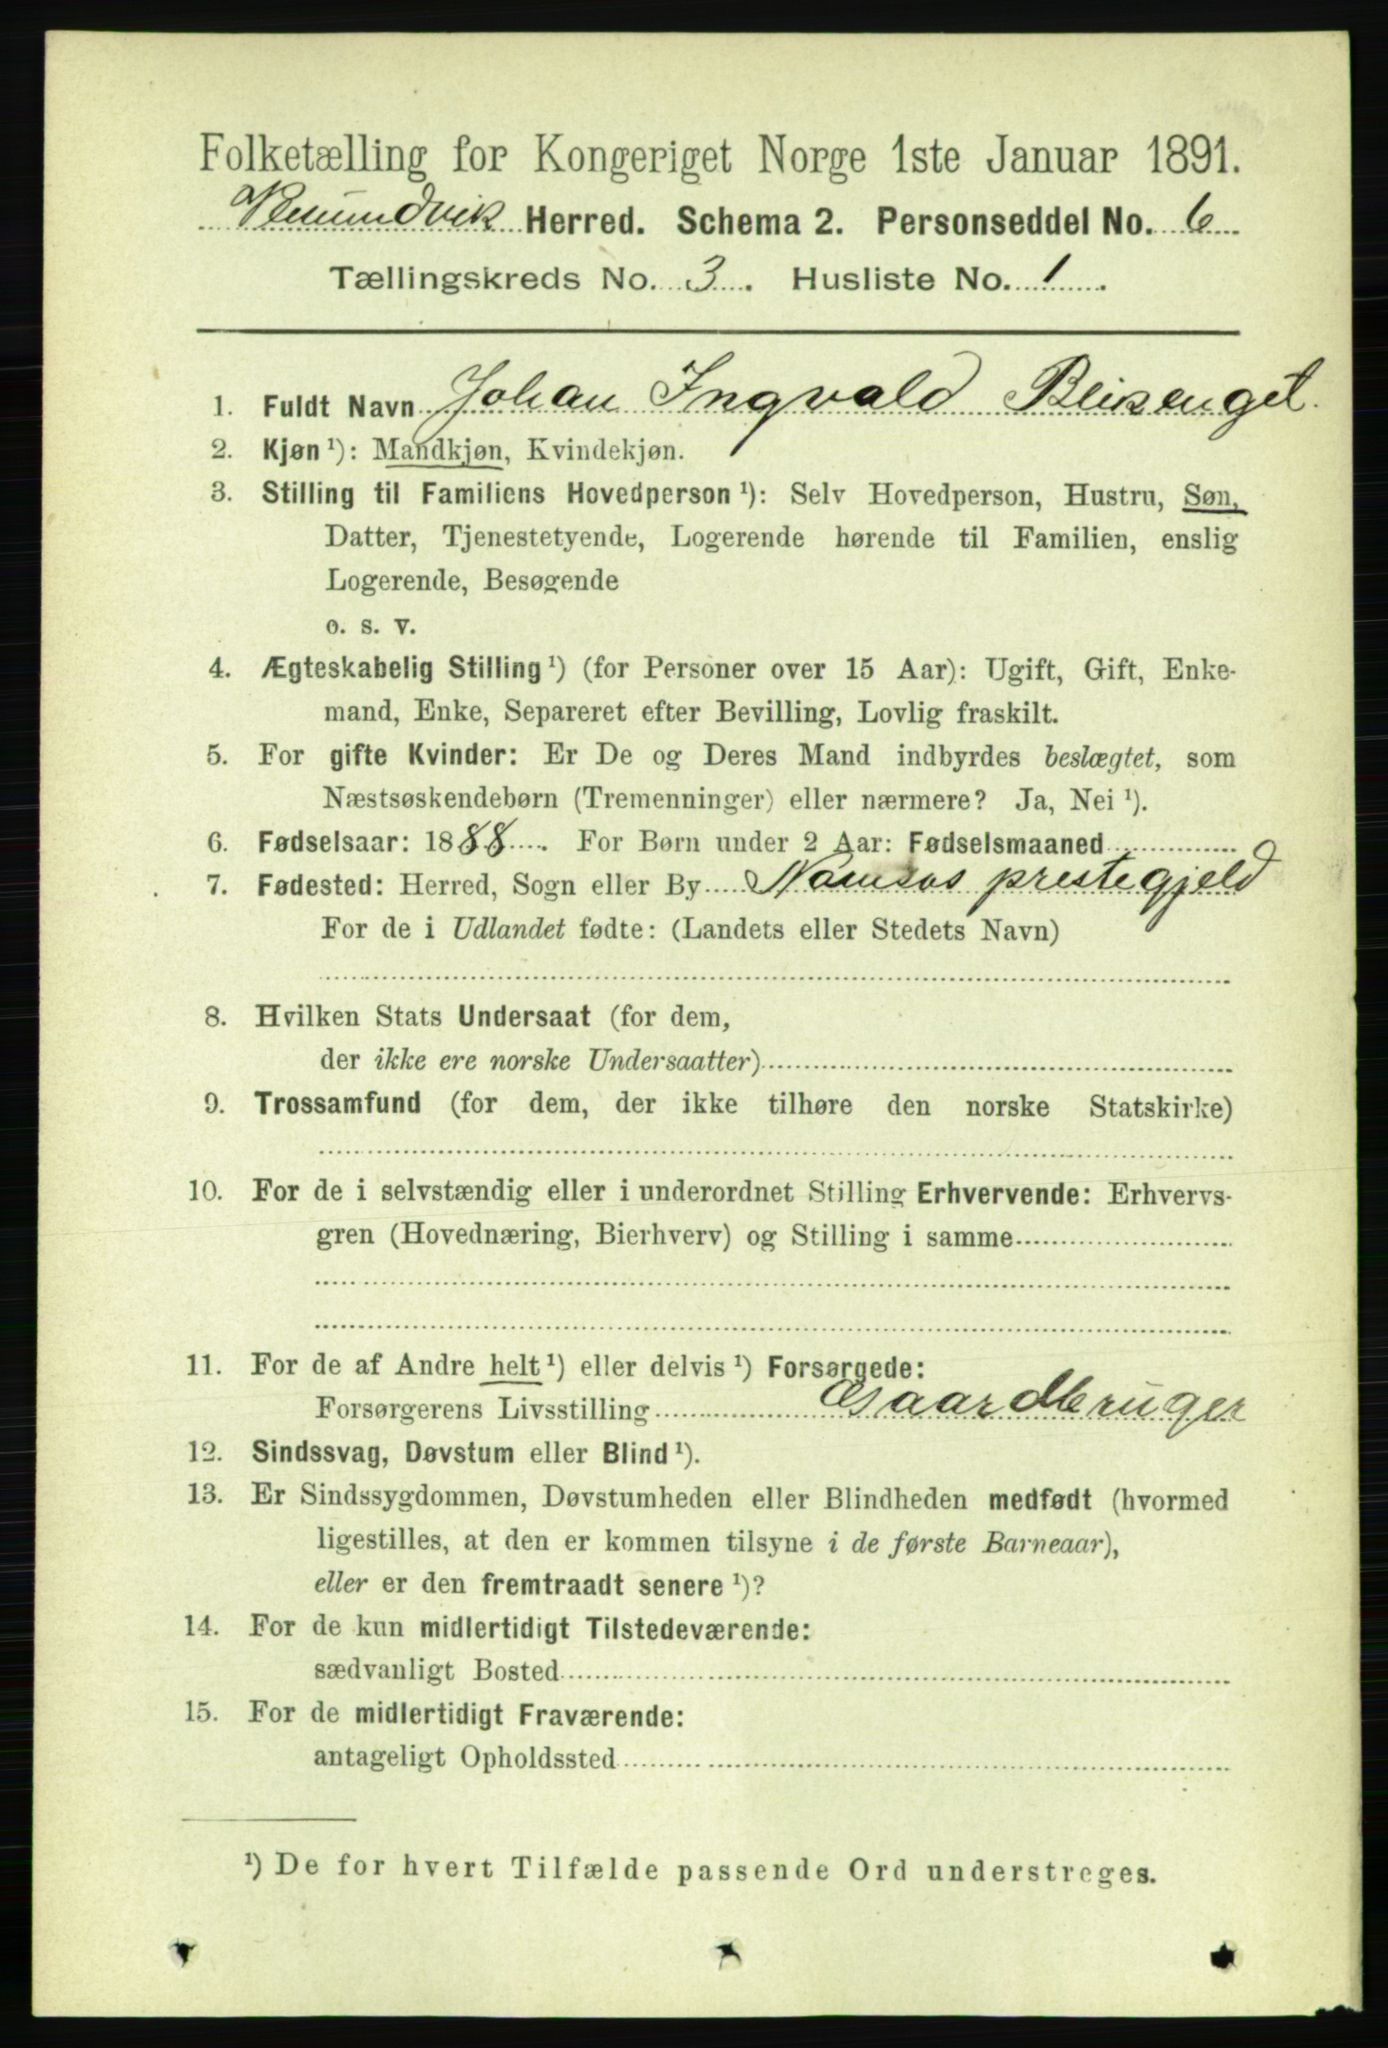 Folketælling for Kongeriget Norge 1ste Januar 1891.
Vemundvik Herred. Schema 2. Personseddel No. 6
Tællingskreds No. 3. Husliste No. 1.
1. Fuldt Navn Johan Ingvald Blikenget.
2. Kjøn ¹): Mandkjøn, Kvindekjøn.
3. Stilling til Familiens Hovedperson ¹): Selv Hovedperson, Hustru, Søn,
Datter, Tjenestetyende, Logerende hørende til Familien, enslig
Logerende, Besøgende
o. s. v.
4. Ægteskabelig Stilling ¹) (for Personer over 15 Aar): Ugift, Gift, Enke-
mand, Enke, Separeret efter Bevilling, Lovlig fraskilt.
5. For gifte Kvinder: Er De og Deres Mand indbyrdes beslægtet, som
Næstsøskendebørn (Tremenninger) eller nærmere? Ja, Nei ¹).
6. Fødselsaar: 1888. For Børn under 2 Aar: Fødselsmaaned
7. Fødested: Herred, Sogn eller By Namsos prestegjeld
For de i Udlandet fødte: (Landets eller Stedets Navn)
8. Hvilken Stats Undersaat (for dem,
der ikke ere norske Undersaatter)
9. Trossamfund (for dem, der ikke tilhøre den norske Statskirke)
10. For de i selvstændig eller i underordnet Stilling Erhvervende: Erhvervs-
gren (Hovednæring, Bierhverv) og Stilling i samme
11. For de af Andre helt ¹) eller delvis ¹) Forsørgede:
Forsørgerens Livsstilling Gaardbruger
12. Sindssvag, Døvstum eller Blind ¹).
13. Er Sindssygdommen, Døvstumheden eller Blindheden medfødt (hvormed
ligestilles, at den er kommen tilsyne i de første Barneaar),
eller er den fremtraadt senere ¹)?
14. For de kun midlertidigt Tilstedeværende:
sædvanligt Bosted
15. For de midlertidigt Fraværende:
antageligt Opholdssted
¹) De for hvert Tilfælde passende Ord understreges.